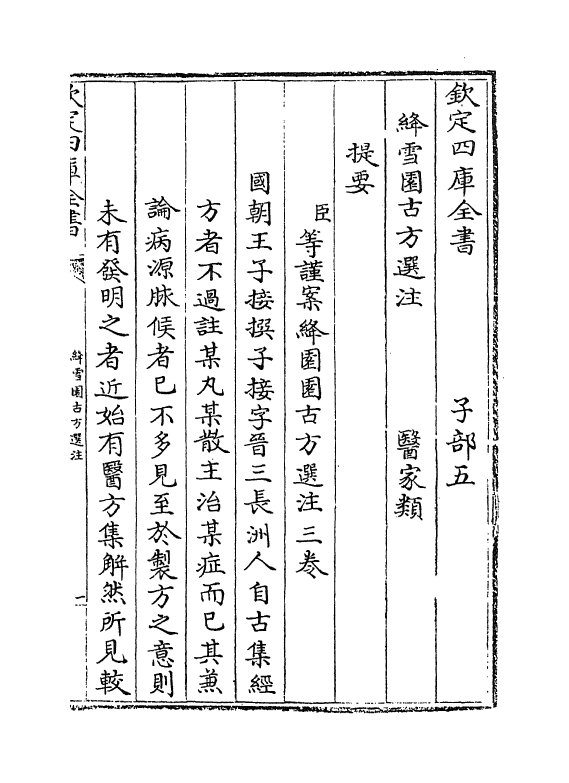 欽定四庫全書　子部五
絳雪園古方選注　醫家類
提要
臣等謹案絳園園古方選注三卷
國朝王子接撰子接字晉三長洲人自古集經
方者不過註某丸某散主治某症而已其兼
論病源脉候者已不多見至於製方之意則
未有發明之者近始有醫方集解然所見較
欽定四庫全書
絳雪園古方選注
一